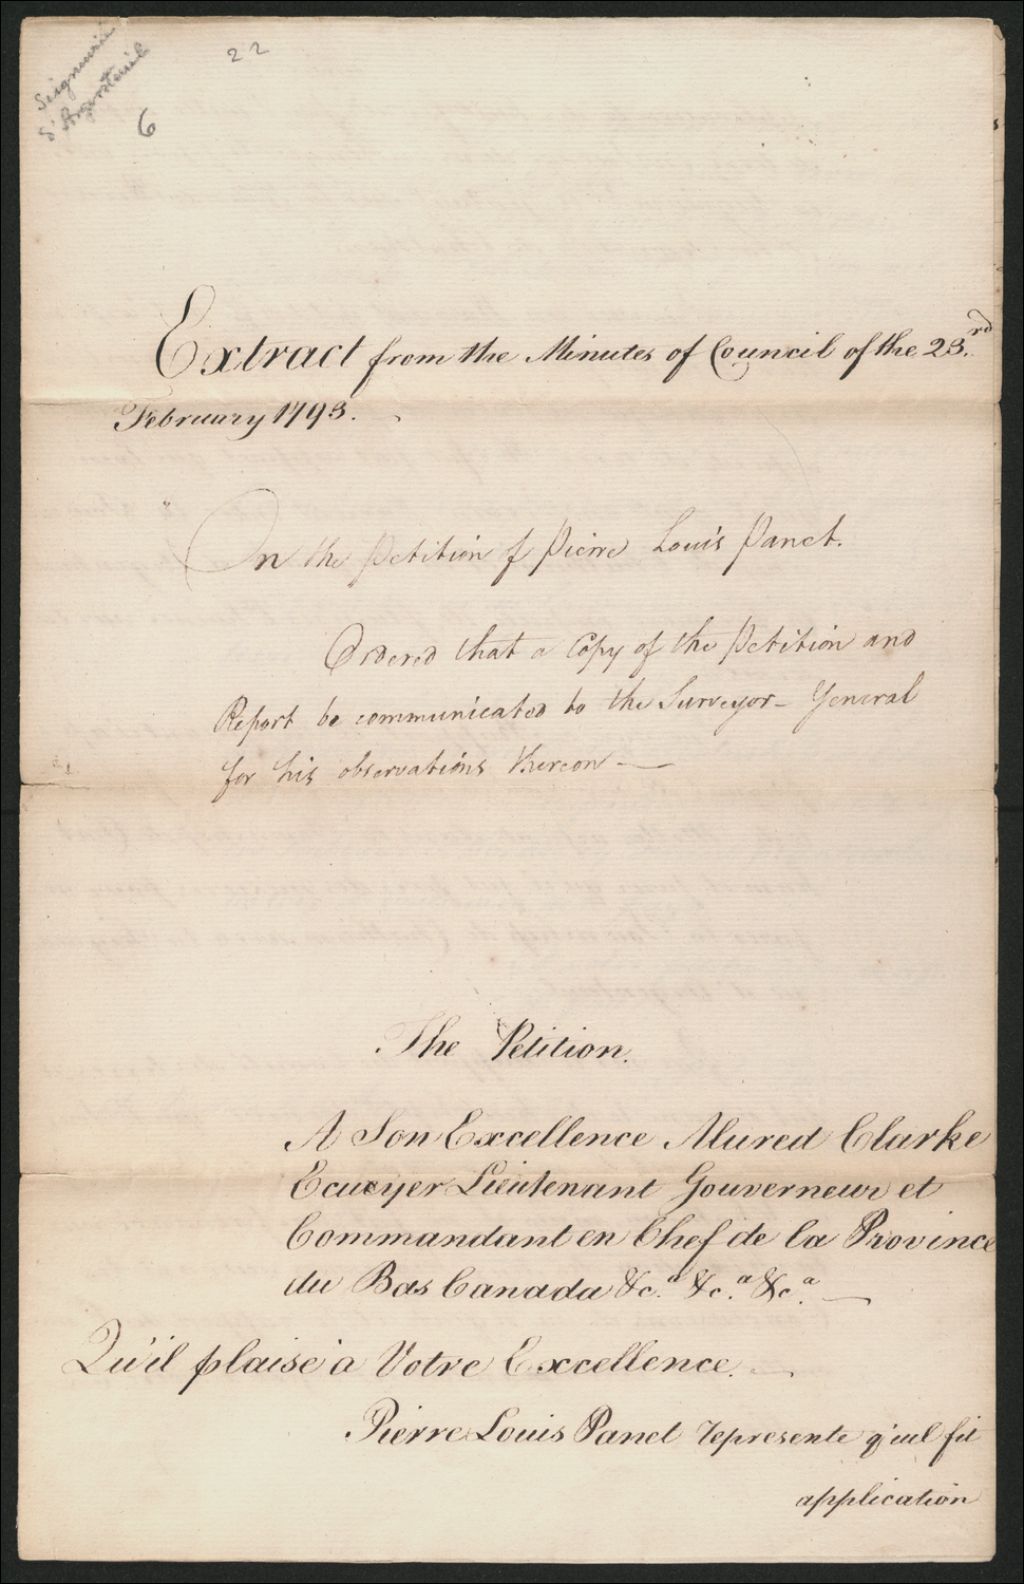 Seigneurie
d'Argenteuil
6
22
Extract from the Minutes of Council of the 23.rd
February 1793.
On the Petition of Pierre Louis Panet.
Ordered that a Copy of the Petition and
Report be communicated to the Surveyor-General
for his observations thereon —
The Petition.
A Son Excellence Alured Clarke
Ecueyer Lieutenant Gouverneur et
Commandant en Chef de la Province
du Bas Canada &c.a &c.a &c.a —
Qu'il plaise à Votre Excellence.
Pierre Louis Panet represente q'uil fit
application